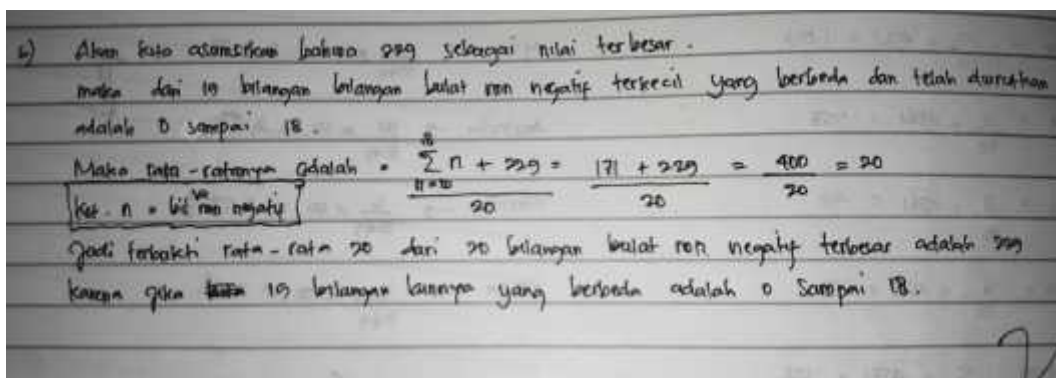 b) Akan kita asumsikan bahwa 229 sebagai nilai terbesar.
maka dari 19 bilangan bilangan bulat non negatif terkecil yang berbeda dan telah diurutkan
adalah 0 sampai 18.
Maka rata-ratanya adalah = \frac{\sum_{n=0}^{18} n + 229}{20} = \frac{171 + 229}{20} = \frac{400}{20} = 20
Ket. n = bil non negatif
Jadi terbukti rata-rata 20 dari 20 bilangan bulat non negatif terbesar adalah 229
karena jika 19 bilangan lainnya yang berbeda adalah 0 sampai 18.